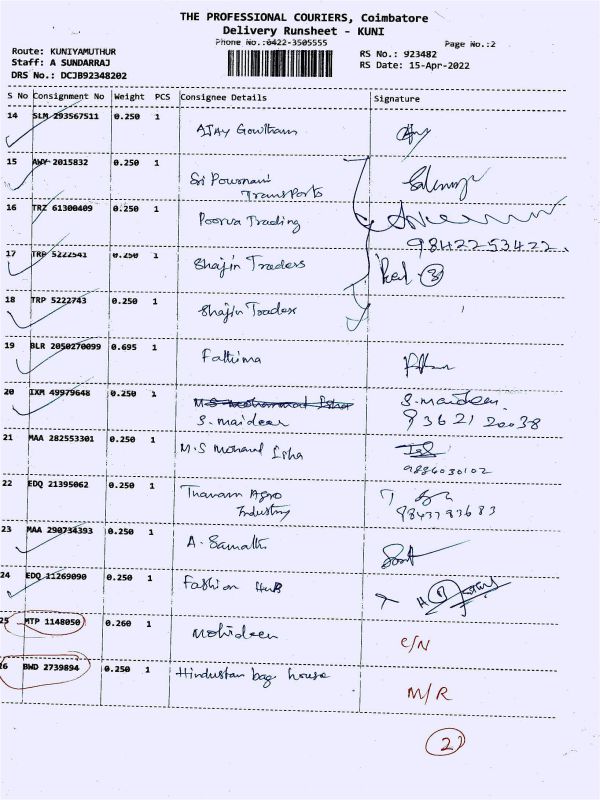 THE PROFESSIONAL COURIERS, Coimbatore
Delivery Runsheet - KUNI
Phone No.:0422-3505555
Page No.:2
Route: KUNIYAMUTHUR
Staff: A SUNDARRAJ
DRS No.: DCJB92348202
RS No.: 923482
RS Date: 15-Apr-2022
S No Consignment No Weight PCS Consignee Details Signature
14 SLM 293567511 0.250 1 AJAY Gowtham
15 AWY 2015832 0.250 1 Sri Pournami
Transports
16 TRZ 61300409 0.250 1 Poorva Trading
9842253422
17 TRP 5222541 0.250 1 Shajin Traders
3
18 TRP 5222743 0.250 1 Shajin Traders
19 BLR 2050270099 0.695 1 Fathima
20 IXM 49979648 0.250 1 S. maideen
S. maideen
93621 20038
21 MAA 282553301 0.250 1 M.S Mohamd Isha
9886030102
22 EDQ 21395062 0.250 1 Thavam Agro
Industry
9843793683
23 MAA 290734393 0.250 1 A. Samathi
24 EDQ 11269090 0.250 1 Fashion Hub
25 MTP 1148050 0.260 1 Mohideen C/N
26 BWD 2739894 0.250 1 Hindustan bag house M/R
2